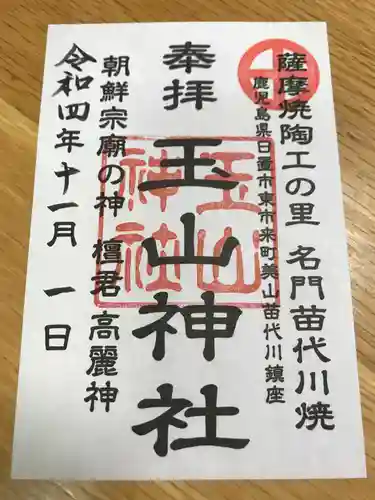 薩摩焼陶工の里 名門苗代川焼
鹿児島県日置市東市来町美山苗代川鎮座
奉拝
玉山神社
玉山神社
朝鮮宗廟の神 檀君 高麗神
令和四年十一月 一日